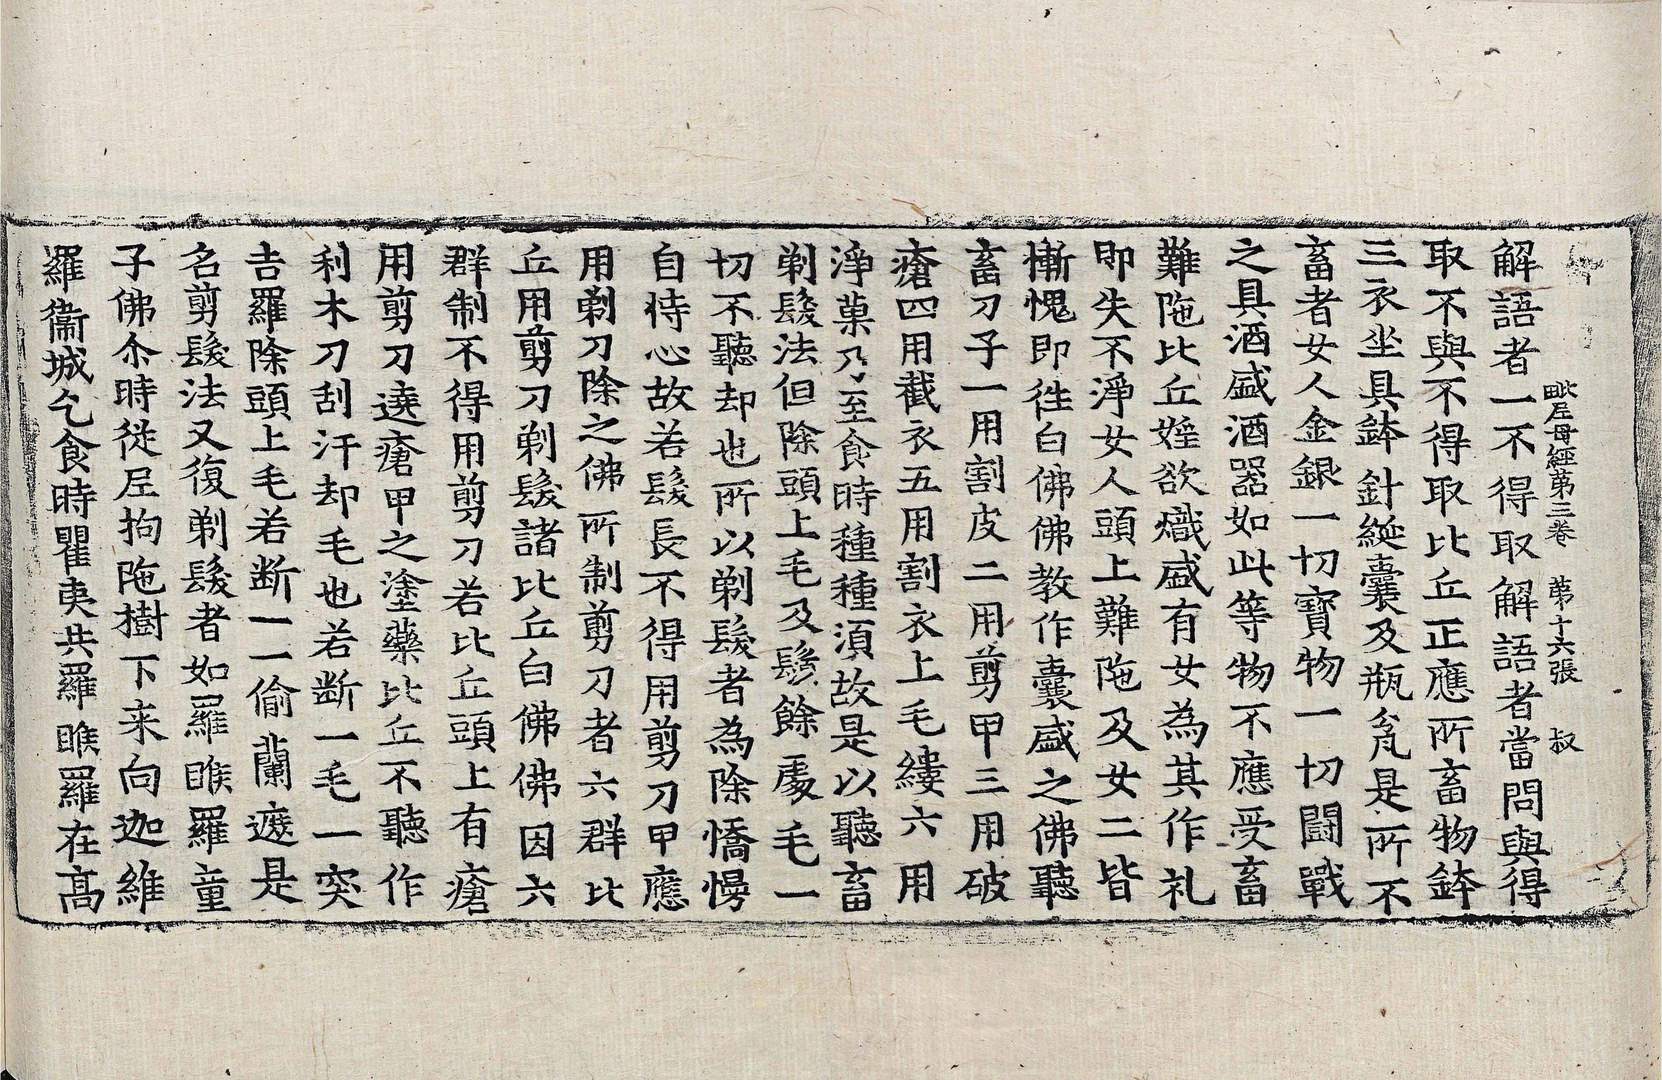 毗尼母經第三卷　第十六張　叔
解語者一不得取解語者當問與得
取不與不得取比丘正應所畜物鉢
三衣坐具鉢針綖囊及瓶瓫是所不
畜者女人金銀一切寶物一切鬪戰
之具酒盛酒器如此等物不應受畜
難陁比丘婬欲熾盛有女為其作礼
即失不淨女人頭上難陁及女二皆
慚愧即徃白佛佛教作囊盛之佛聽
畜刀子一用割皮二用剪甲三用破
瘡四用截衣五用割衣上毛縷六用
淨菓乃至食時種種湏故是以聽畜
剃髮法但除頭上毛及鬚餘處毛一
切不聽却也所以剃髮者為除憍慢
自恃心故若髮長不得用剪刀甲應
用剃刀除之佛所制剪刀者六群比
丘用剪刀剃髮諸比丘白佛佛因六
群制不得用剪刀若比丘頭上有瘡
用剪刀遶瘡甲之塗藥比丘不聽作
利木刀刮汗却毛也若断一毛一突
吉羅除頭上毛若断一一偷蘭遮是
名剪髮法又復剃髮者如羅睺羅童
子佛尒時從尼拘陁樹下来向迦維
羅衞城乞食時瞿夷共羅睺羅在高